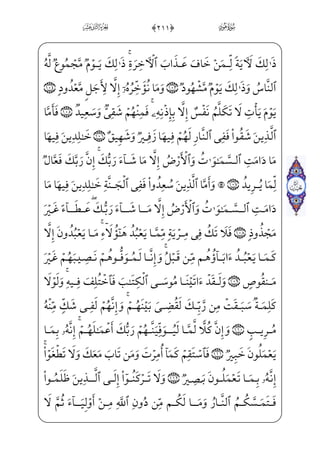 سُورَةُ هُودٍ ﴿٢١١﴾ الجُزْءُ الثَّانِي عَشَرَ
ذَٰلِكَ لَأٓيَةٗ لِّمَنۡ خَافَ عَذَابَ ٱلۡأٓخِرَةِۚ ذَٰلِكَ يَوۡمٞ مَّجۡمُوعٞ لَّهُ
ٱلنَّاسُ وَذَٰلِكَ يَوۡمٞ مَّشۡهُودٞ وَمَا نُؤَخِّرُهُۥٓ إِلَّا لِأَجَلٖ مَّعۡدُودٖ
يَوۡمَ يَأۡتِ لَا تَكَلَّمُ نَفۡسٌ إِلَّا بِإِذۡنِهِۦۚ فَمِنۡهُمۡ شَقِيّٞ وَسَعِيدٞ فَأَمَّا
ٱلَّذِينَ شَقُواْ فَفِي ٱلنَّارِ لَهُمۡ فِيهَا زَفِيرٞ وَشَهِيقٌ خَٰلِدِينَ فِيهَا
مَا دَامَتِ ٱلسَّمَٰوَٰتُ وَٱلۡأَرۡضُ إِلَّا مَا شَآءَ رَبُّكَۚ إِنَّ رَبَّكَ فَعَّالٞ
لِّمَا يُرِيدُ وَأَمَّا ٱلَّذِينَ سُعِدُواْ فَفِي ٱلۡجَنَّةِ خَٰلِدِينَ فِيهَا مَا
دَامَتِ ٱلسَّمَٰوَٰتُ وَٱلۡأَرۡضُ إِلَّا مَا شَآءَ رَبُّكَۖ عَطَآءً غَيۡرَ
مَجۡذُوذٖ فَلَا تَكُ فِي مِرۡيَةٖ مِّمَّا يَعۡبُدُ هَٰٓؤُلَآءِۚ مَا يَعۡبُدُونَ إِلَّا
كَمَا يَعۡبُدُ ءَابَآؤُهُم مِّن قَبۡلُۚ وَإِنَّا لَمُوَفُّوهُمۡ نَصِيبَهُمۡ غَيۡرَ
مَنقُوصٖ وَلَقَدۡ ءَاتَيۡنَا مُوسَى ٱلۡكِتَٰبَ فَٱخۡتُلِفَ فِيهِۚ وَلَوۡلَا
كَلِمَةٞ سَبَقَتۡ مِن رَّبِّكَ لَقُضِيَ بَيۡنَهُمۡۚ وَإِنَّهُمۡ لَفِي شَكّٖ مِّنۡهُ
مُرِيبٖ وَإِنَّ كُلّٗا لَّمَّا لَيُوَفِّيَنَّهُمۡ رَبُّكَ أَعۡمَٰلَهُمۡۚ إِنَّهُۥ بِمَا
يَعۡمَلُونَ خَبِيرٞ فَٱسۡتَقِمۡ كَمَآ أُمِرۡتَ وَمَن تَابَ مَعَكَ وَلَا تَطۡغَوۡاْۚ
إِنَّهُۥ بِمَا تَعۡمَلُونَ بَصِيرٞ وَلَا تَرۡكَنُوٓاْ إِلَى ٱلَّذِينَ ظَلَمُواْ
فَتَمَسَّكُمُ ٱلنَّارُ وَمَا لَكُم مِّن دُونِ ٱللَّهِ مِنۡ أَوۡلِيَآءَ ثُمَّ لَا